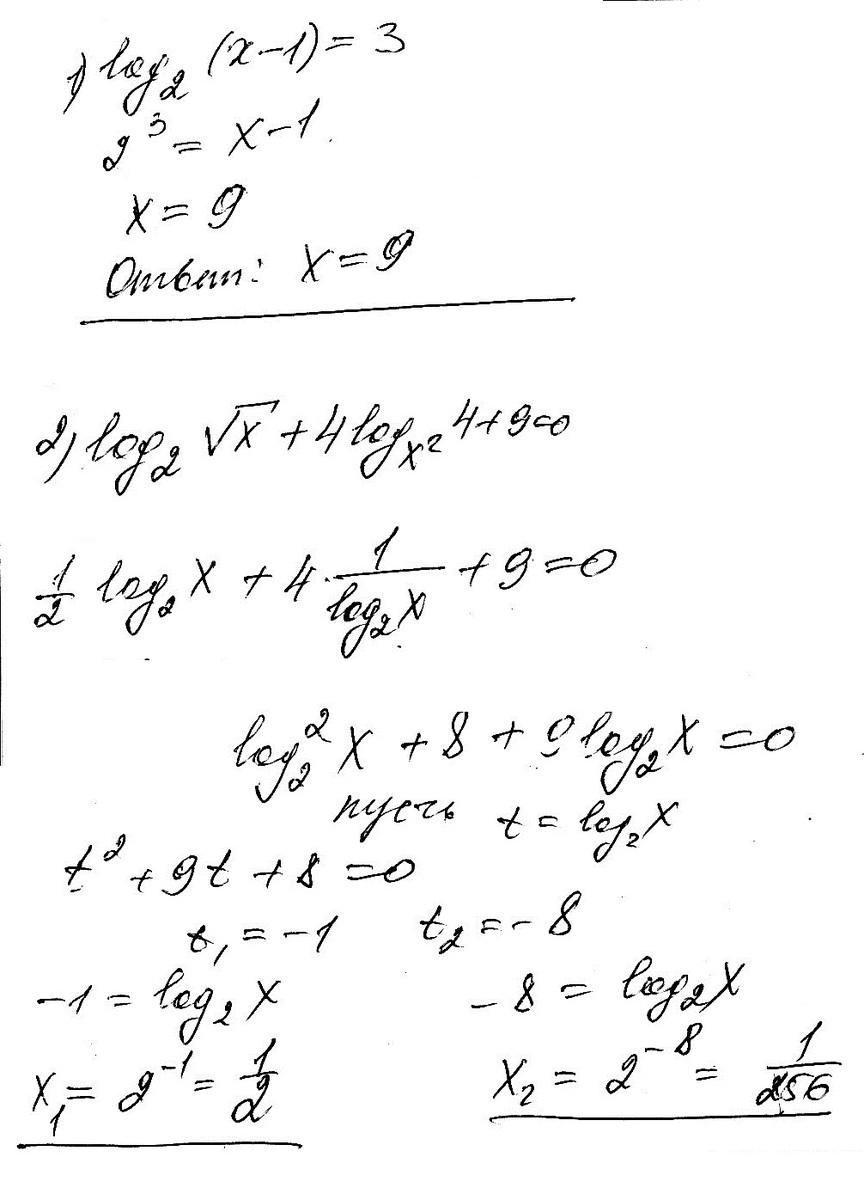 1) log₂ (x-1) = 3
2³ = x-1
x = 9
Ответ: x = 9
2) log₂ √x + 4 log_x² 4 + 9 = 0
1/2 log₂ x + 4 · 1/log₂x + 9 = 0
log₂² x + 8 + 9 log₂ x = 0
пусть t = log₂ x
t² + 9t + 8 = 0
t₁ = -1 t₂ = -8
-1 = log₂ x -8 = log₂ x
x₁ = 2⁻¹ = 1/2 x₂ = 2⁻⁸ = 1/256